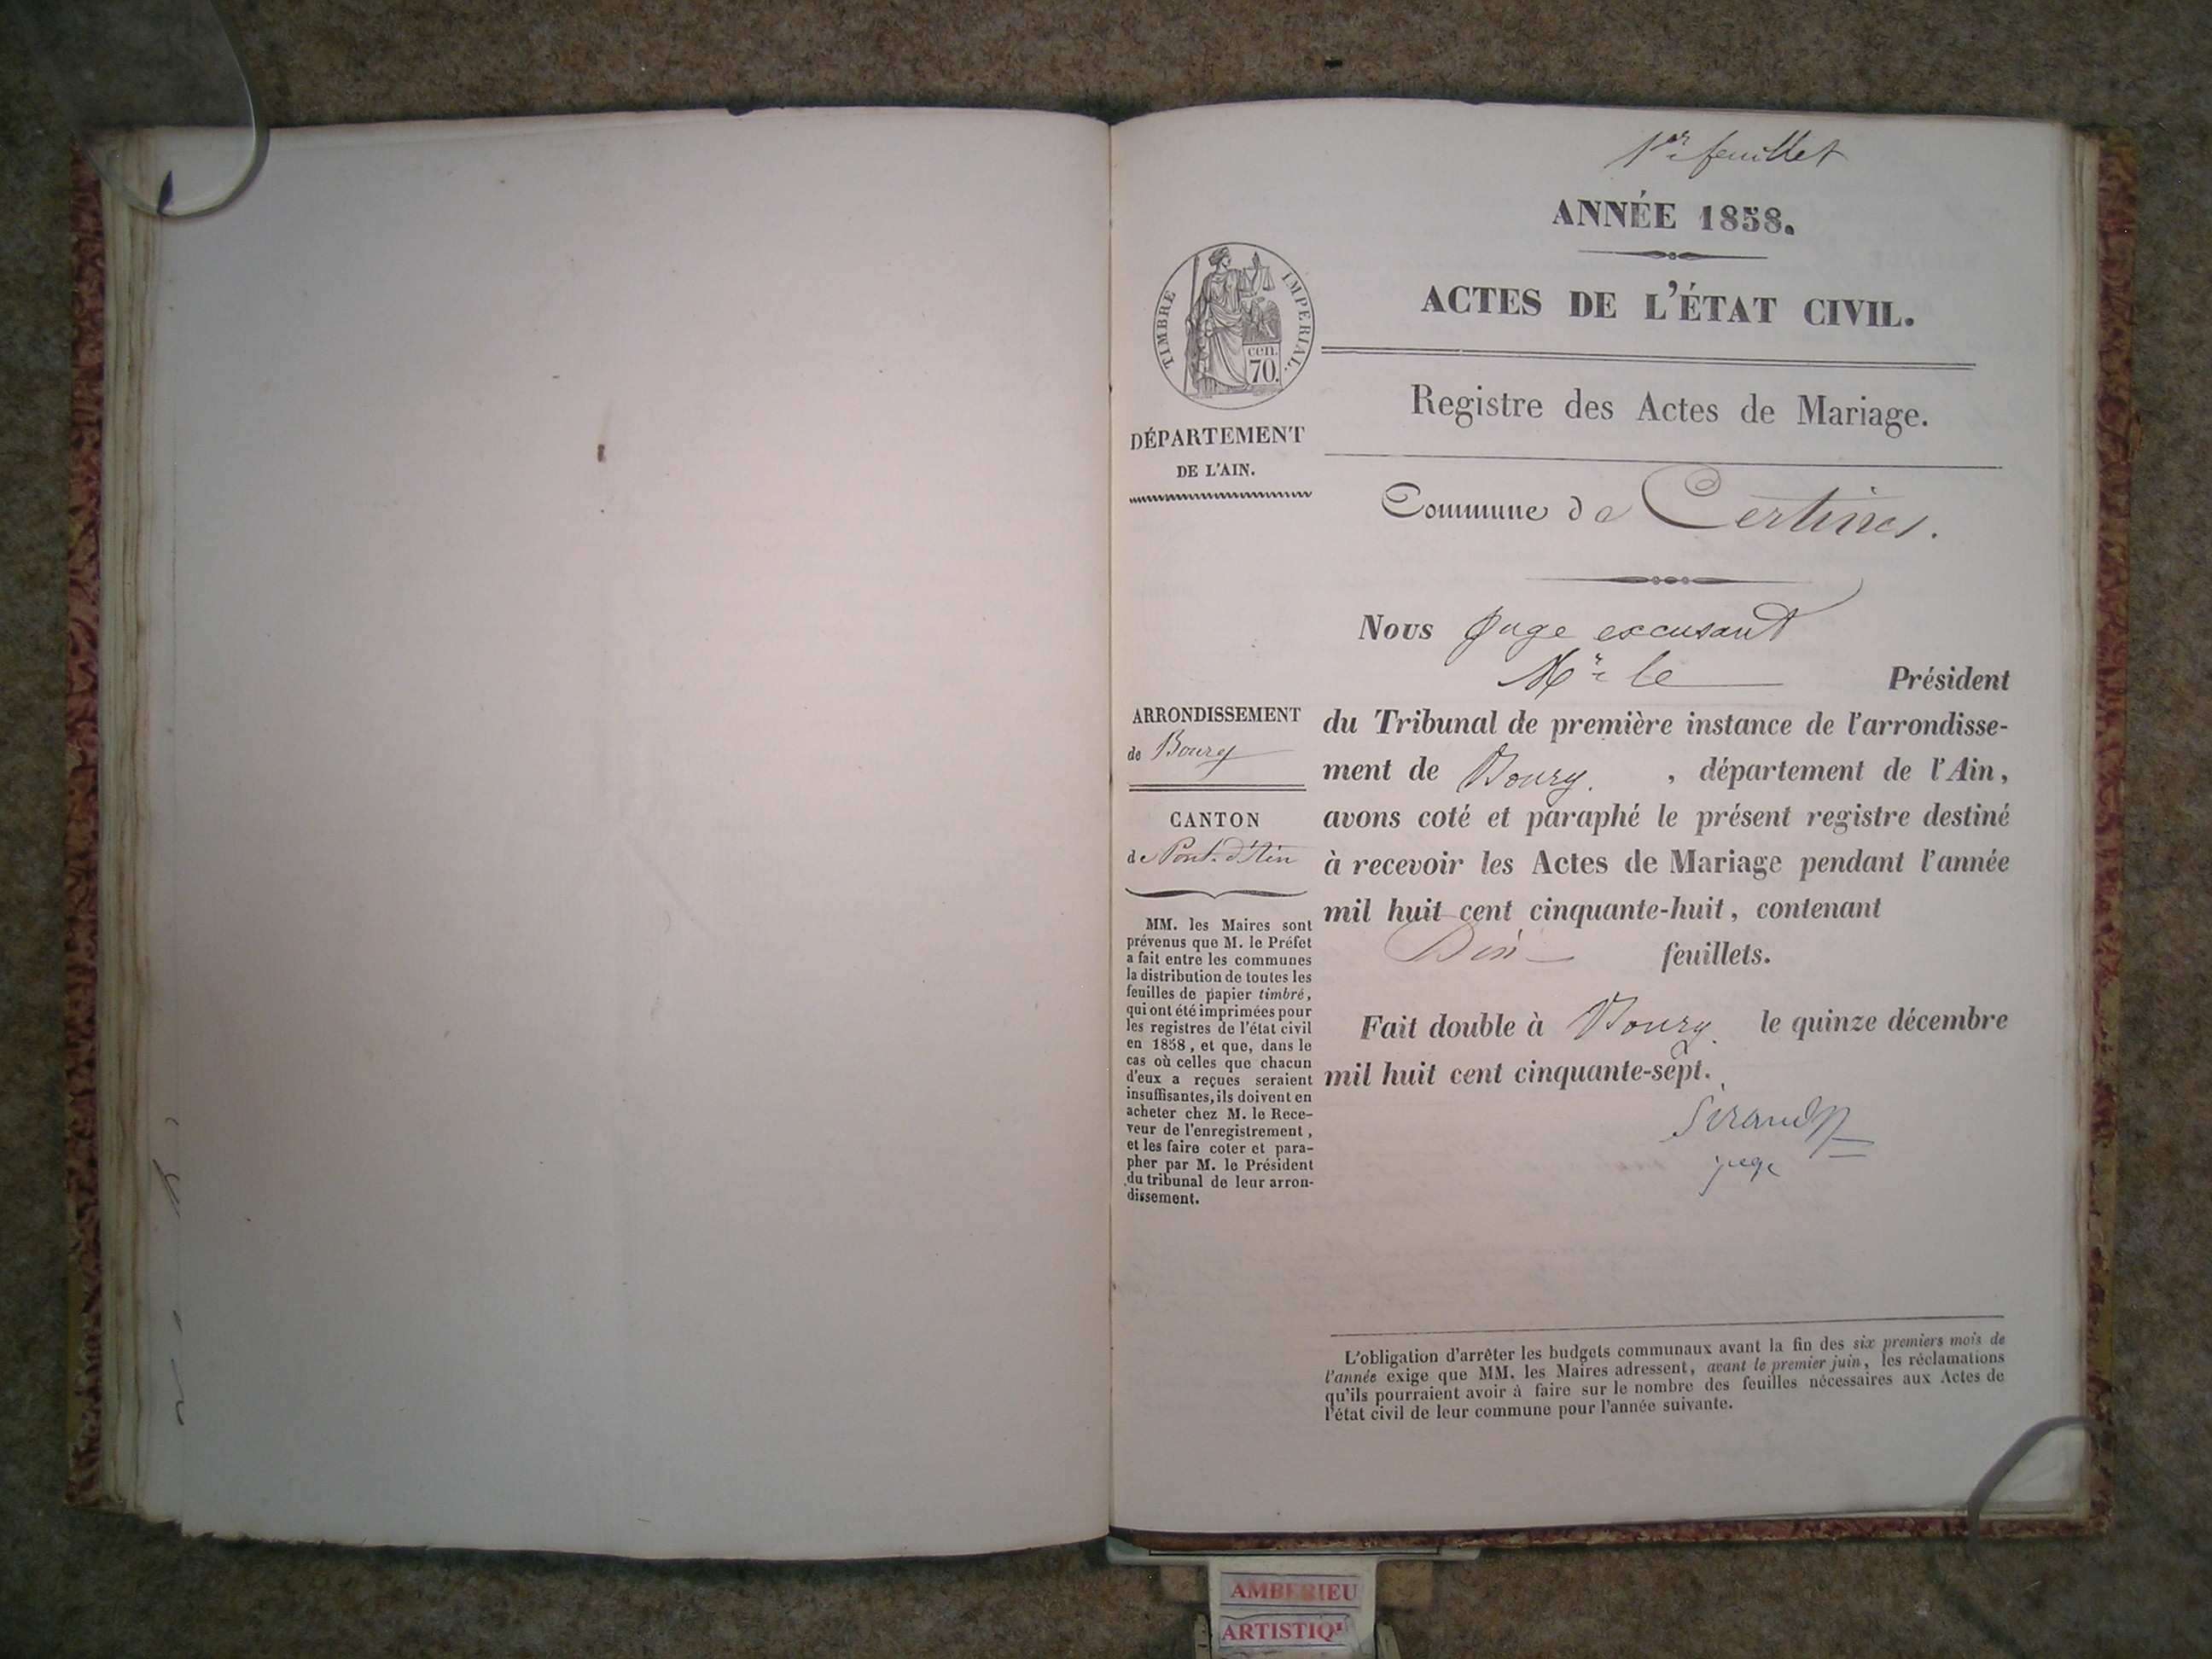 1er feuillet
ANNÉE 1858.
ACTES DE L'ÉTAT CIVIL.
TIMBRE IMPÉRIAL.
cen.
70.
Registre des Actes de Mariage.
DÉPARTEMENT
DE L'AIN.
Commune de Certines.
Nous Juge excusant
Mr le Président
du Tribunal de première instance de l'arrondisse-
ment de Bourg. , département de l'Ain,
avons coté et paraphé le présent registre destiné
à recevoir les Actes de Mariage pendant l'année
mil huit cent cinquante-huit, contenant
Dix feuillets.
Fait double à Bourg. le quinze décembre
mil huit cent cinquante-sept.
juge
ARRONDISSEMENT
de Bourg
CANTON
de Pont-d'Ain
MM. les Maires sont
prévenus que M. le Préfet
a fait entre les communes
la distribution de toutes les
feuilles de papier timbré,
qui ont été imprimées pour
les registres de l'état civil
en 1858, et que, dans le
cas où celles que chacun
d'eux a reçues seraient
insuffisantes, ils doivent en
acheter chez M. le Rece-
veur de l'enregistrement,
et les faire coter et para-
pher par M. le Président
du tribunal de leur arron-
dissement.
L'obligation d'arrêter les budgets communaux avant la fin des six premiers mois de
l'année exige que MM. les Maires adressent, avant le premier juin, les réclamations
qu'ils pourraient avoir à faire sur le nombre des feuilles nécessaires aux Actes de
l'état civil de leur commune pour l'année suivante.
AMBERIEU
ARTISTIQ